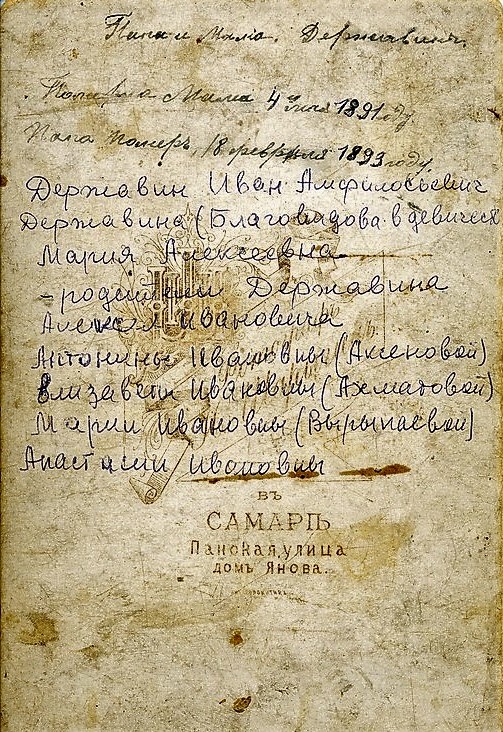 Папа и Мама. Державины.
Померла Мама 4 мая 1891 году
Папа померъ, 18 февраля 1893 году
Державин Иван Амфилохиевич
Державина (Благовидова в девичест
Мария Алексеевна
- родители Державина
Алексея Ивановича
Антонины Ивановны (Аксеновой)
Елизаветы Ивановны (Ахматовой)
Марии Ивановны (Вырыпаевой)
Анастасии Ивановны
въ
САМАРѢ
Панская улица
домъ Янова.